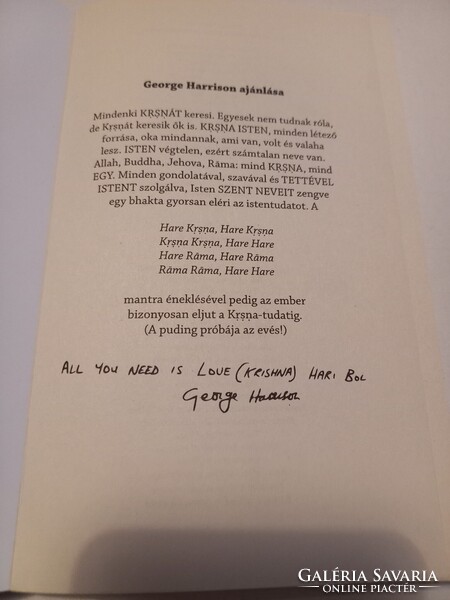 George Harrison ajánlása
Mindenki KṚṢṆÁT keresi. Egyesek nem tudnak róla,
de Kṛṣṇát keresik ők is. KṚṢṆA ISTEN, minden létező
forrása, oka mindannak, ami van, volt és valaha
lesz. ISTEN végtelen, ezért számtalan neve van.
Allah, Buddha, Jehova, Rāma: mind KṚṢṆA, mind
EGY. Minden gondolatával, szavával és TETTÉVEL
ISTENT szolgálva, Isten SZENT NEVEIT zengve
egy bhakta gyorsan eléri az istentudatot. A
Hare Kṛṣṇa, Hare Kṛṣṇa
Kṛṣṇa Kṛṣṇa, Hare Hare
Hare Rāma, Hare Rāma
Rāma Rāma, Hare Hare
mantra éneklésével pedig az ember
bizonyosan eljut a Kṛṣṇa-tudatig.
(A puding próbája az evés!)
ALL YOU NEED IS LOVE (KRISHNA) HARI BOL
George Harrison
GALÉRIA SAVARIA
ONLINE PIACTÉR